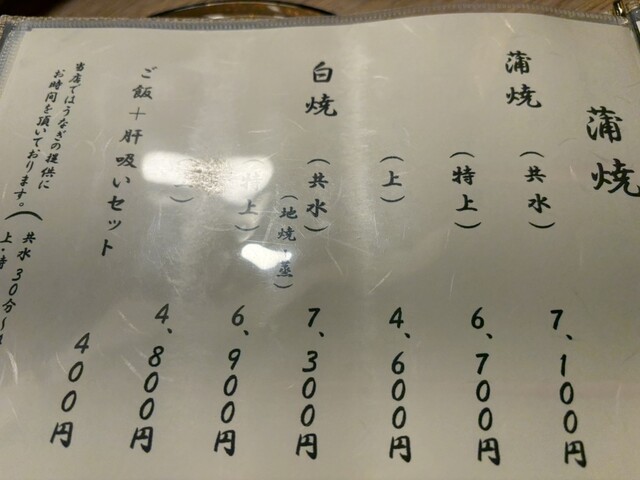 蒲焼
蒲焼（共水）7、100円
（特上）6、700円
（上）4、600円
白焼（共水）7、300円
（地焼・蒸）
（特上）6、900円
4、800円
ご飯＋肝吸いセット 400円
当店ではうなぎの提供に
お時間を頂いております。（共水30分～